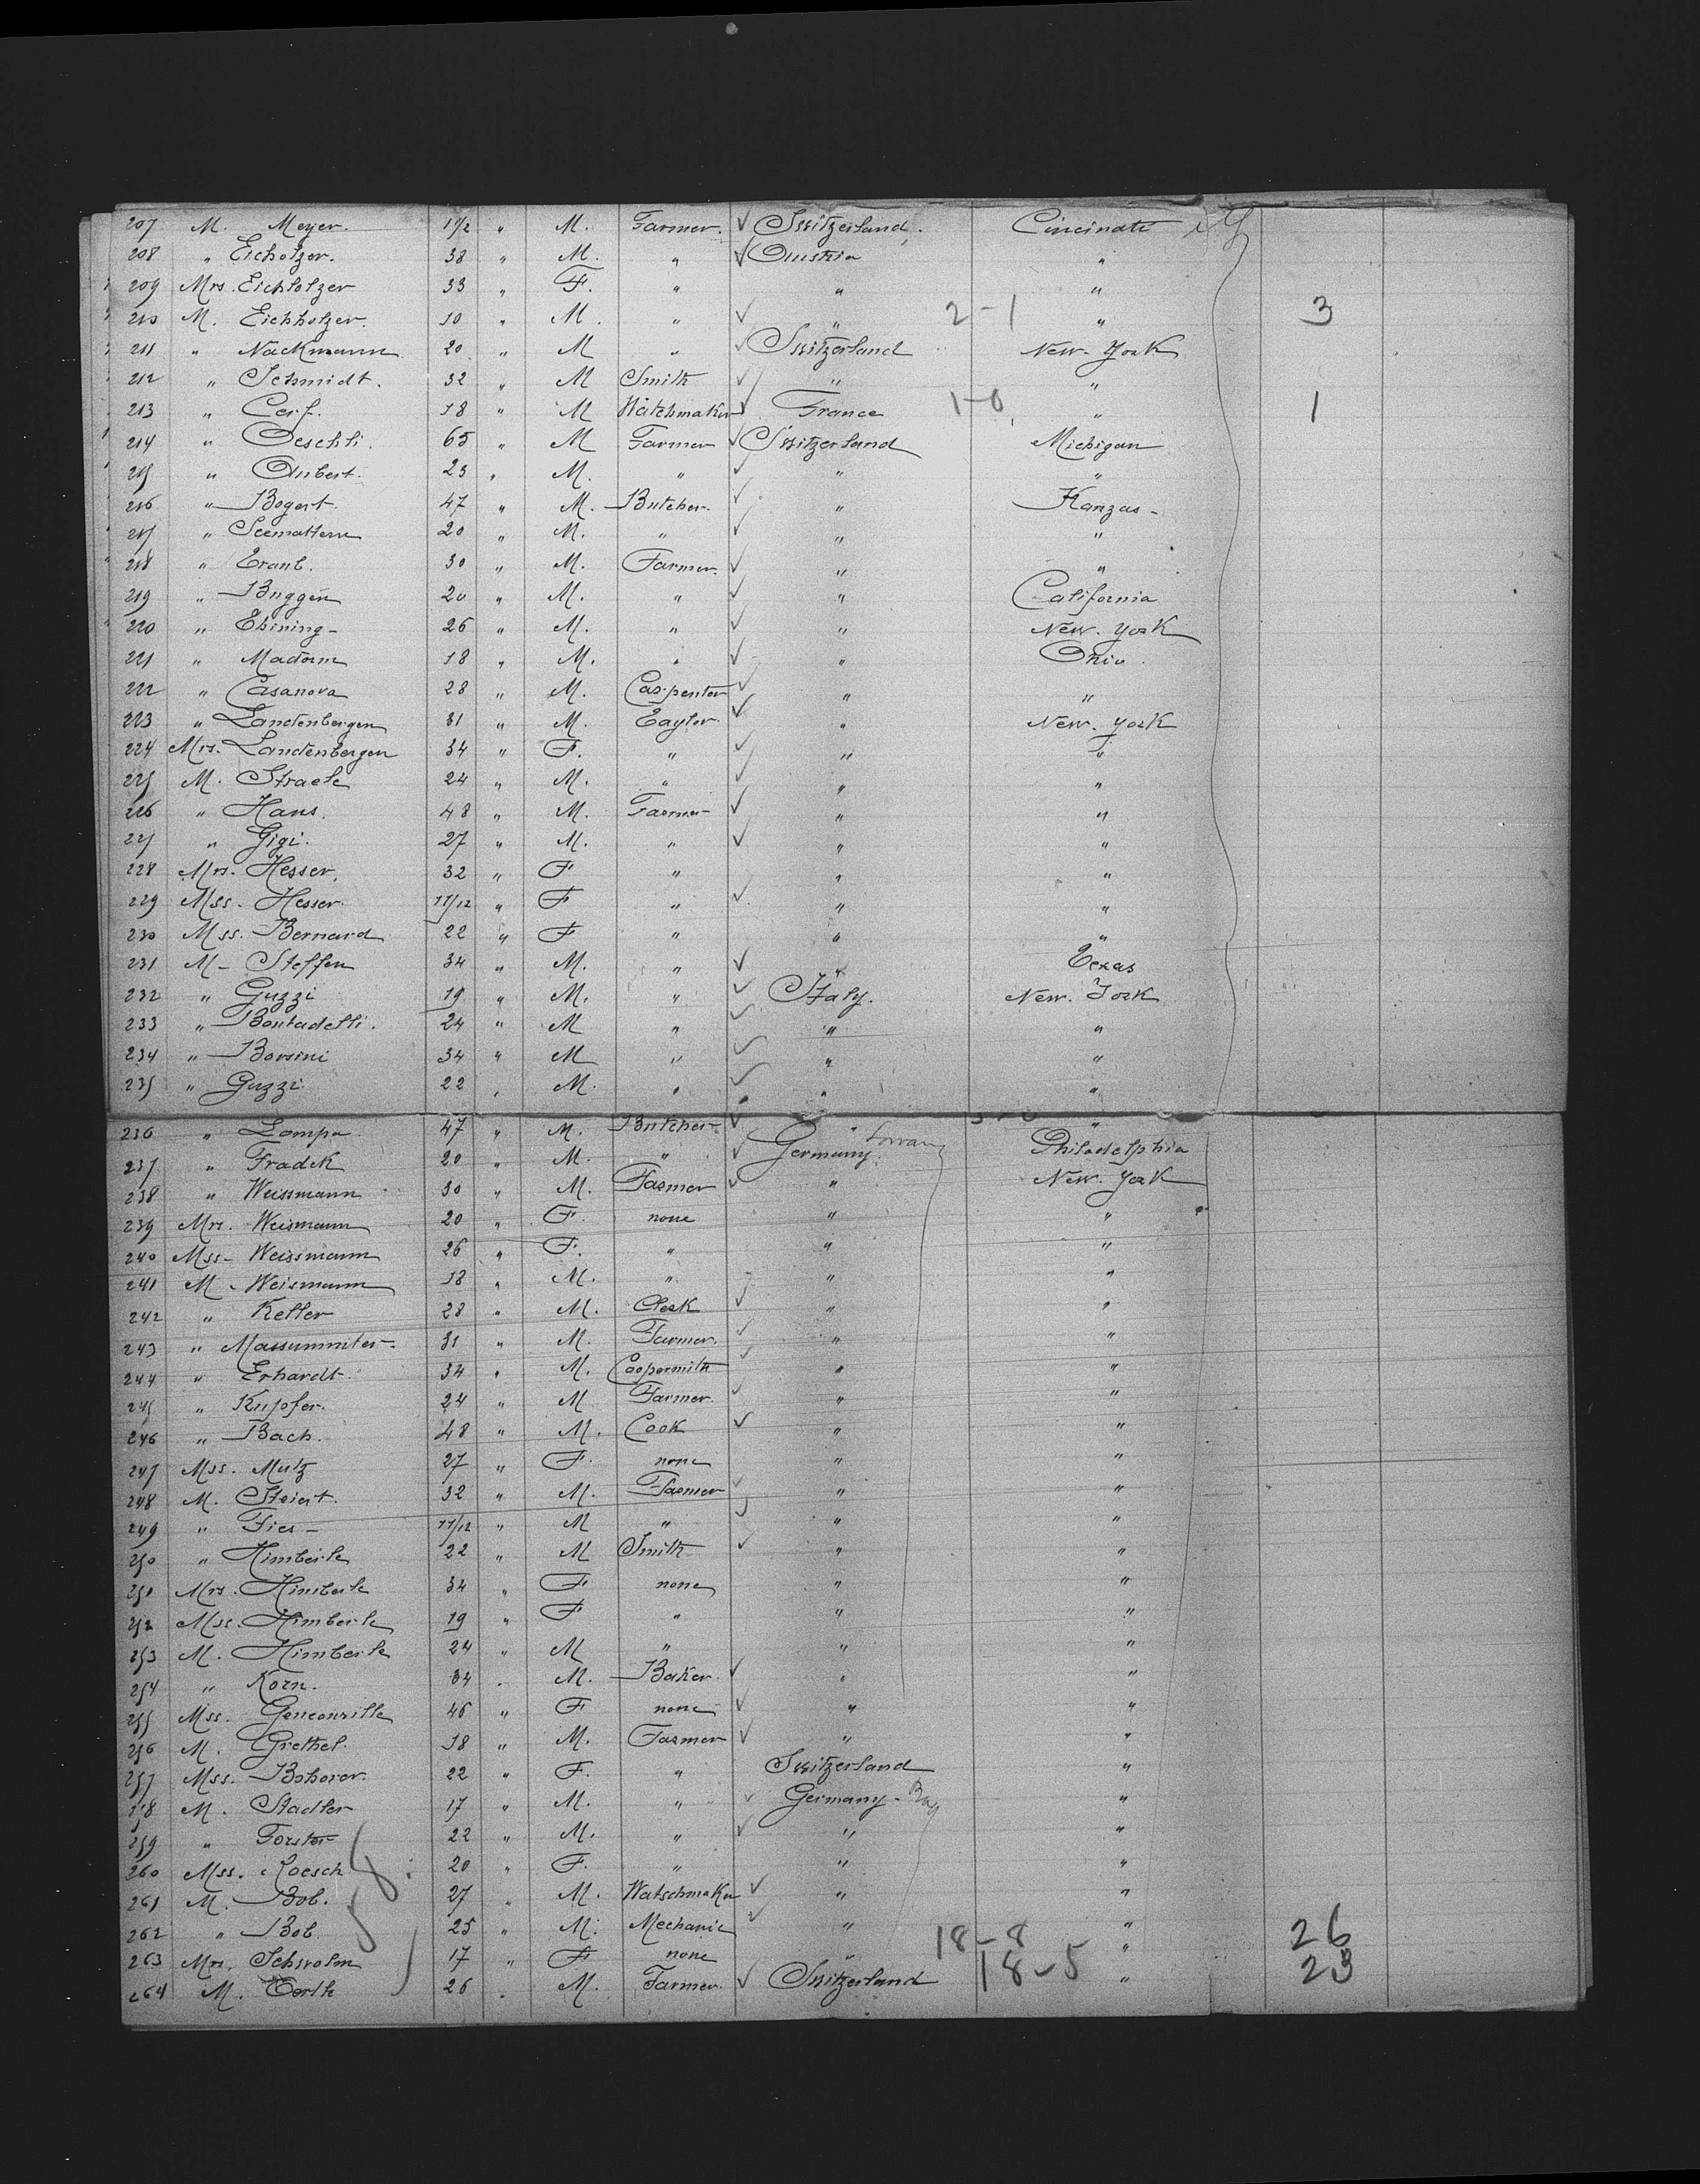 207 M. Meyer. 1 1/2 " M. Farmer. ✓ Switzerland. Cincinati
208 " Eicholzer. 38 " M. " ✓ Oustria "
209 Mrs. Eichholzer 33 " F. " " "
210 M. Eichholzer. 10 " M. " ✓ " 2-1 " 3
211 " Nackmann 20 " M " ✓ Switzerland New-York
212 " Schmidt. 32 " M Smith ✓ " "
213 " Cerf. 18 " M Watchmaker ✓ France 1-0 " 1
214 " Oeschli. 65 " M Farmer ✓ Switzerland Michigan
215 " Aubert. 23 " M. " ✓ " "
216 " Bogert. 47 " M. Butcher. ✓ " Kanzas-
217 " Seemattern 20 " M. " ✓ " "
218 " 30 " M. Farmer. ✓ " "
219 " Buggen 20 " M. " ✓ " California
220 " Ebining- 26 " M. " ✓ " New-York
221 " Madorin 18 " M. " ✓ " Ohio.
222 " Casanova 28 " M. Carpenter ✓ " "
223 " Landenbergen 31 " M. Taylor. ✓ " New-York
224 Mrs. Landenbergen 34 " F. " ✓ " "
225 M. Straele 24 " M. " ✓ " "
226 " Hans. 48 " M. Farmer ✓ " "
227 " Gigi. 27 " M. " ✓ " "
228 Mrs. Hesser. 32 " F " " "
229 Mss. Hesser. 11/12 " F " ✓ " "
230 Mss. Bernard 22 " F " " "
231 M- Steffen 34 " M. " ✓ " Texas
232 " Guzzi 19 " M. " ✓ Italy. New-York
233 " Bontadelli. 24 " M " ✓ " "
234 " Borsini 34 " M " ✓ " "
235 " Guzzi. 22 " M. " ✓ " "
236 " Lompa 47 " M. Butcher ✓ " "
237 " Fradek 20 " M. " ✓ Germany. Philadelphia
238 " Weissmann 30 " M. Farmer ✓ " New-York
239 Mrs. Weismann 20 " F. none " "
240 Mss- Weissmann 26 " F. " " "
241 M. Weismann 18 " M. " " "
242 " Keller 28 " M. Clerk ✓ " "
243 " Massummiter. 31 " M. Farmer. ✓ " "
244 " Erhardt. 34 " M. Coopersmith ✓ " "
245 " Kupfer. 24 " M Farmer. ✓ " "
246 " Bach. 48 " M. Cook ✓ " "
247 Mss. Mutz 27 " F. none " "
248 M. Steiert. 32 " M. Farmer ✓ " "
249 " Fies- 11/12 " M " ✓ " "
250 " Himberle 22 " M Smith ✓ " "
251 Mrs. Himberle 34 " F none " "
252 Mss. Himberle 19 " F " " "
253 M. Himberle 24 " M " " "
254 " Korn. 34 " M. Baker. ✓ " "
255 Mss. Genconrille 46 " F none ✓ " "
256 M. Grethel. 18 " M. Farmer ✓ " "
257 Mss. Bohorer. 22 " F. " Switzerland "
258 M. Stadler 17 " M. " ✓ Germany- Bay "
259 " Forster 22 " M. " ✓ " "
260 Mss. Roesch 20 " F. " " "
261 M. Bob. 27 " M. Watschmaker ✓ " "
262 " Bob 25 " M. Mechanic ✓ " 18-8 " 26
263 Mrs. Schwolm 17 " F none " 18-5 " 23
264 M. 26 " M. Farmer. ✓ Switzerland "